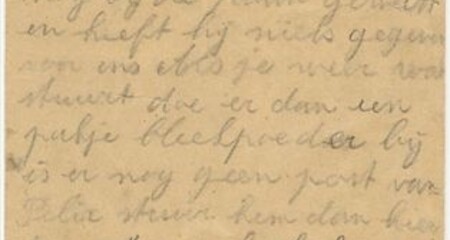 nog bij de
en heeft hij niets gegeven
voor ons Als je weer wat
stuurt doe er dan een
pakje bleekpoeder bij
is er nog geen post van
Felix stuur hem dan hier